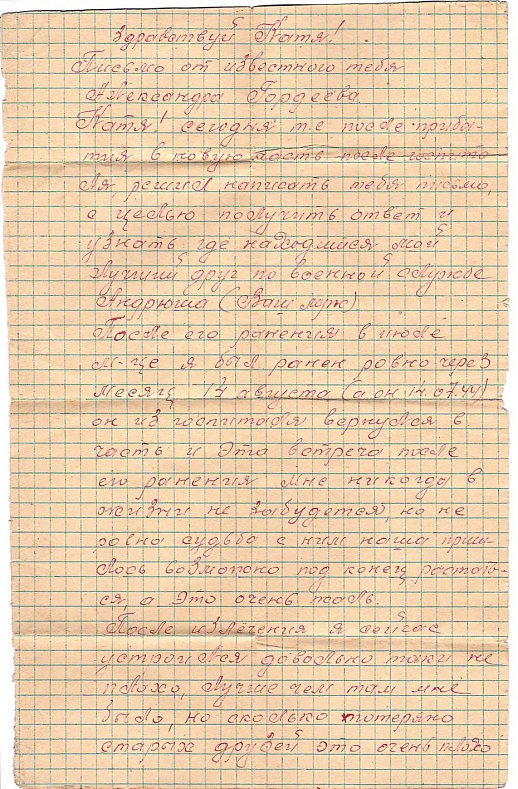 Здравствуй Катя!
Письмо от известного тебя
Александра Гордеева.
Катя! сегодня т.е после прибы-
тия в новую часть после госпита
ля решил написать тебя письмо,
с целью получить ответ и
узнать где находмийся мой
лучший друг по военной службе
Андрюша (Ваш муж)
После его ранения в июле
м-це я был ранен ровно через
месяц 14 августа (а он 14.07.44)
он из госпиталя вернулся в
часть и эта встреча после
его ранения мне никогда в
жизни не забудется, но не
ровна судьба с ним наша приш-
лось возможно под конец растать-
ся, а это очень жаль.
После излечения я сейчас
устроился довольно таки не
плохо, лучше чем там мне
было, но сколько потеряно
старых друзей это очень плохо